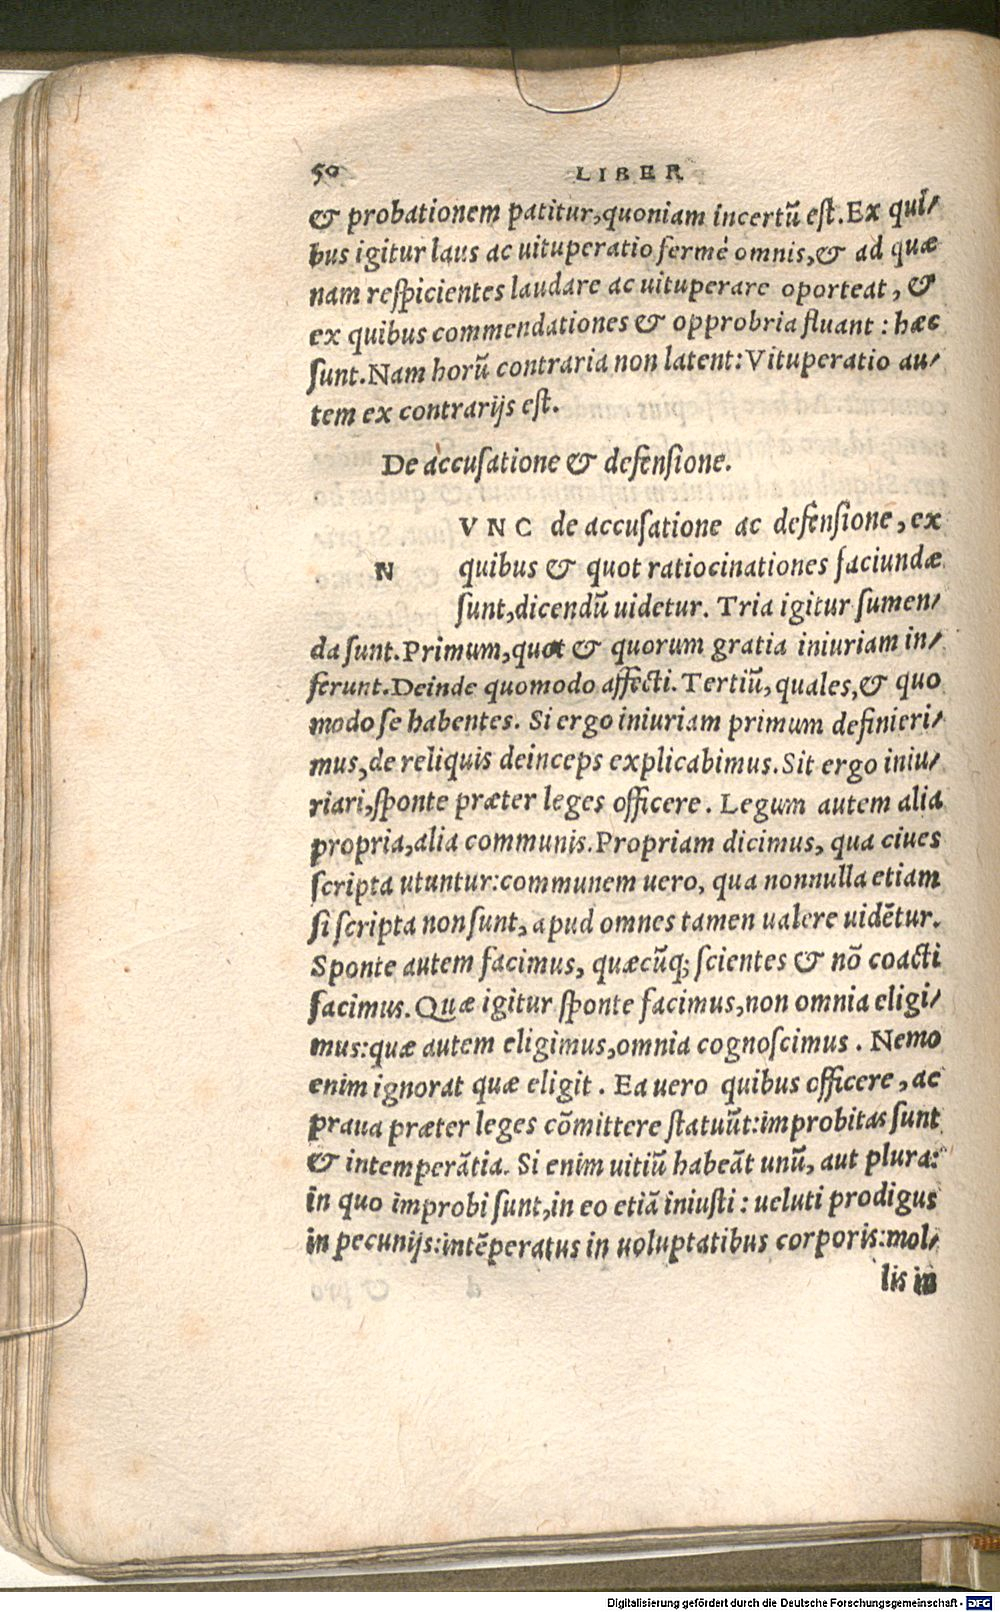 50 LIBER
& probationem patitur,quoniam incertũ est.Ex qui/
bus igitur laus ac uituperatio fermè omnis,& ad quæ
nam respicientes laudare ac uituperare oporteat, &
ex quibus commendationes & opprobria fluant : hæc
sunt.Nam horũ contraria non latent:Vituperatio au/
tem ex contrarijs est.
De accusatione & defensione.
VNC de accusatione ac defensione, ex
N quibus & quot ratiocinationes faciundæ
sunt,dicendũ uidetur. Tria igitur sumen/
da sunt.Primum,quot & quorum gratia iniuriam in/
ferunt.Deinde quomodo affecti.Tertiũ,quales,& quo
modo se habentes. Si ergo iniuriam primum definieri/
mus,de reliquis deinceps explicabimus.Sit ergo iniu/
riari,sponte præter leges officere. Legum autem alia
propria,alia communis.Propriam dicimus, qua ciues
scripta utuntur:communem uero, qua nonnulla etiam
si scripta non sunt, apud omnes tamen ualere uidẽtur.
Sponte autem facimus, quæcũq; scientes & nõ coacti
facimus.Quæ igitur sponte facimus,non omnia eligi/
mus:quæ autem eligimus,omnia cognoscimus. Nemo
enim ignorat quæ eligit. Ea uero quibus officere, ac
praua præter leges cõmittere statuũt:improbitas sunt
& intemperãtia. Si enim uitiũ habeãt unũ, aut plura:
in quo improbi sunt,in eo etiã iniusti : ueluti prodigus
in pecunijs:intẽperatus in uoluptatibus corporis:mol/
lis in
Digitalisierung gefördert durch die Deutsche Forschungsgemeinschaft - DFG